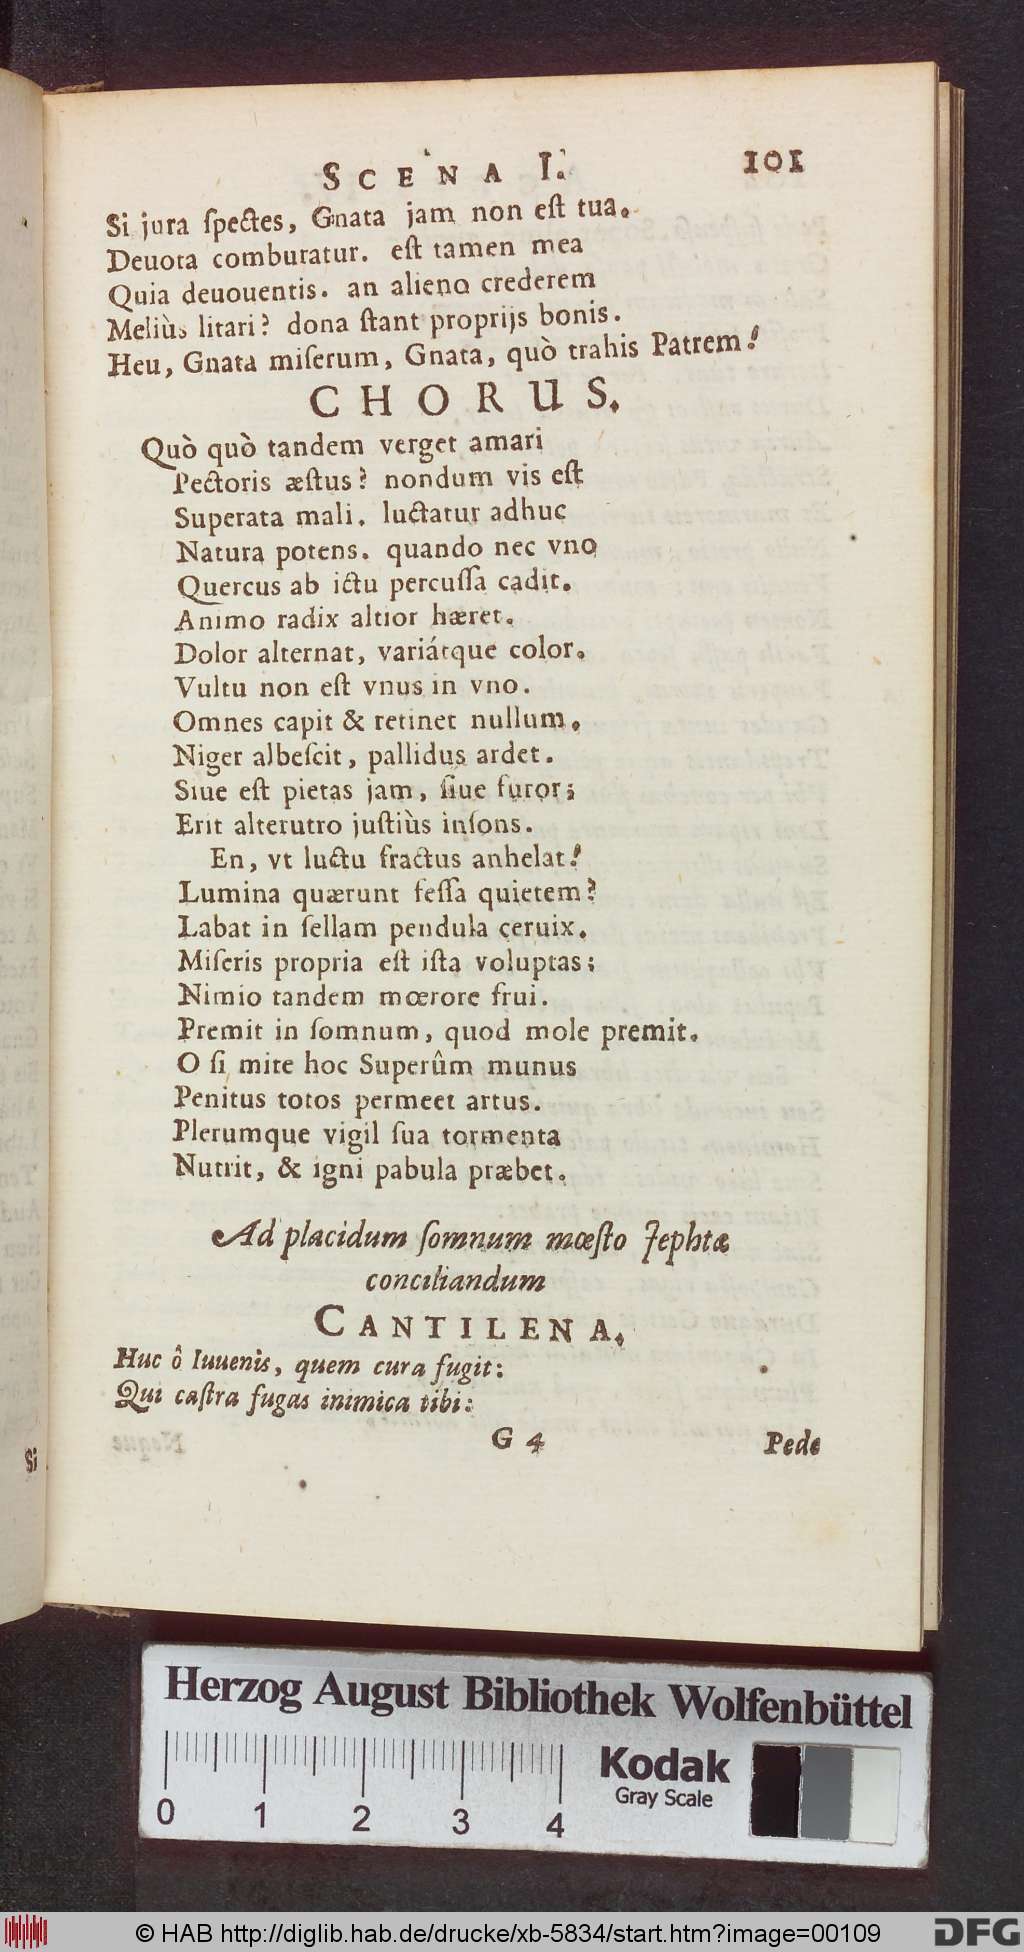 SCENA I. 101
Si jura ſpectes, Gnata jam non eſt tua.
Deuota comburatur. eſt tamen mea
Quia deuouentis. an alieno crederem
Meliùs litari? dona ſtant proprijs bonis.
Heu, Gnata miſerum, Gnata, quò trahis Patrem!
CHORUS.
Quò quò tandem verget amari
Pectoris æſtus? nondum vis eſt
Superata mali. luctatur adhuc
Natura potens. quando nec vno
Quercus ab ictu percuſſa cadit.
Animo radix altior hæret.
Dolor alternat, variátque color.
Vultu non eſt vnus in vno.
Omnes capit & retinet nullum.
Niger albeſcit, pallidus ardet.
Siue eſt pietas jam, ſiue furor;
Erit alterutro juſtiùs inſons.
En, vt luctu fractus anhelat!
Lumina quærunt feſſa quietem?
Labat in ſellam pendula ceruix.
Miſeris propria eſt iſta voluptas;
Nimio tandem mœrore frui.
Premit in ſomnum, quod mole premit.
O ſi mite hoc Superûm munus
Penitus totos permeet artus.
Plerumque vigil ſua tormenta
Nutrit, & igni pabula præbet.
Ad placidum ſomnum mœſto Jephtæ
conciliandum
CANTILENA.
Huc ô Iuuenis, quem cura fugit:
Qui caſtra fugas inimica tibi:
G 4 Pede
Si
Herzog August Bibliothek Wolfenbüttel
Kodak
Gray Scale
0 1 2 3 4
© HAB http://diglib.hab.de/drucke/xb-5834/start.htm?image=00109
DFG